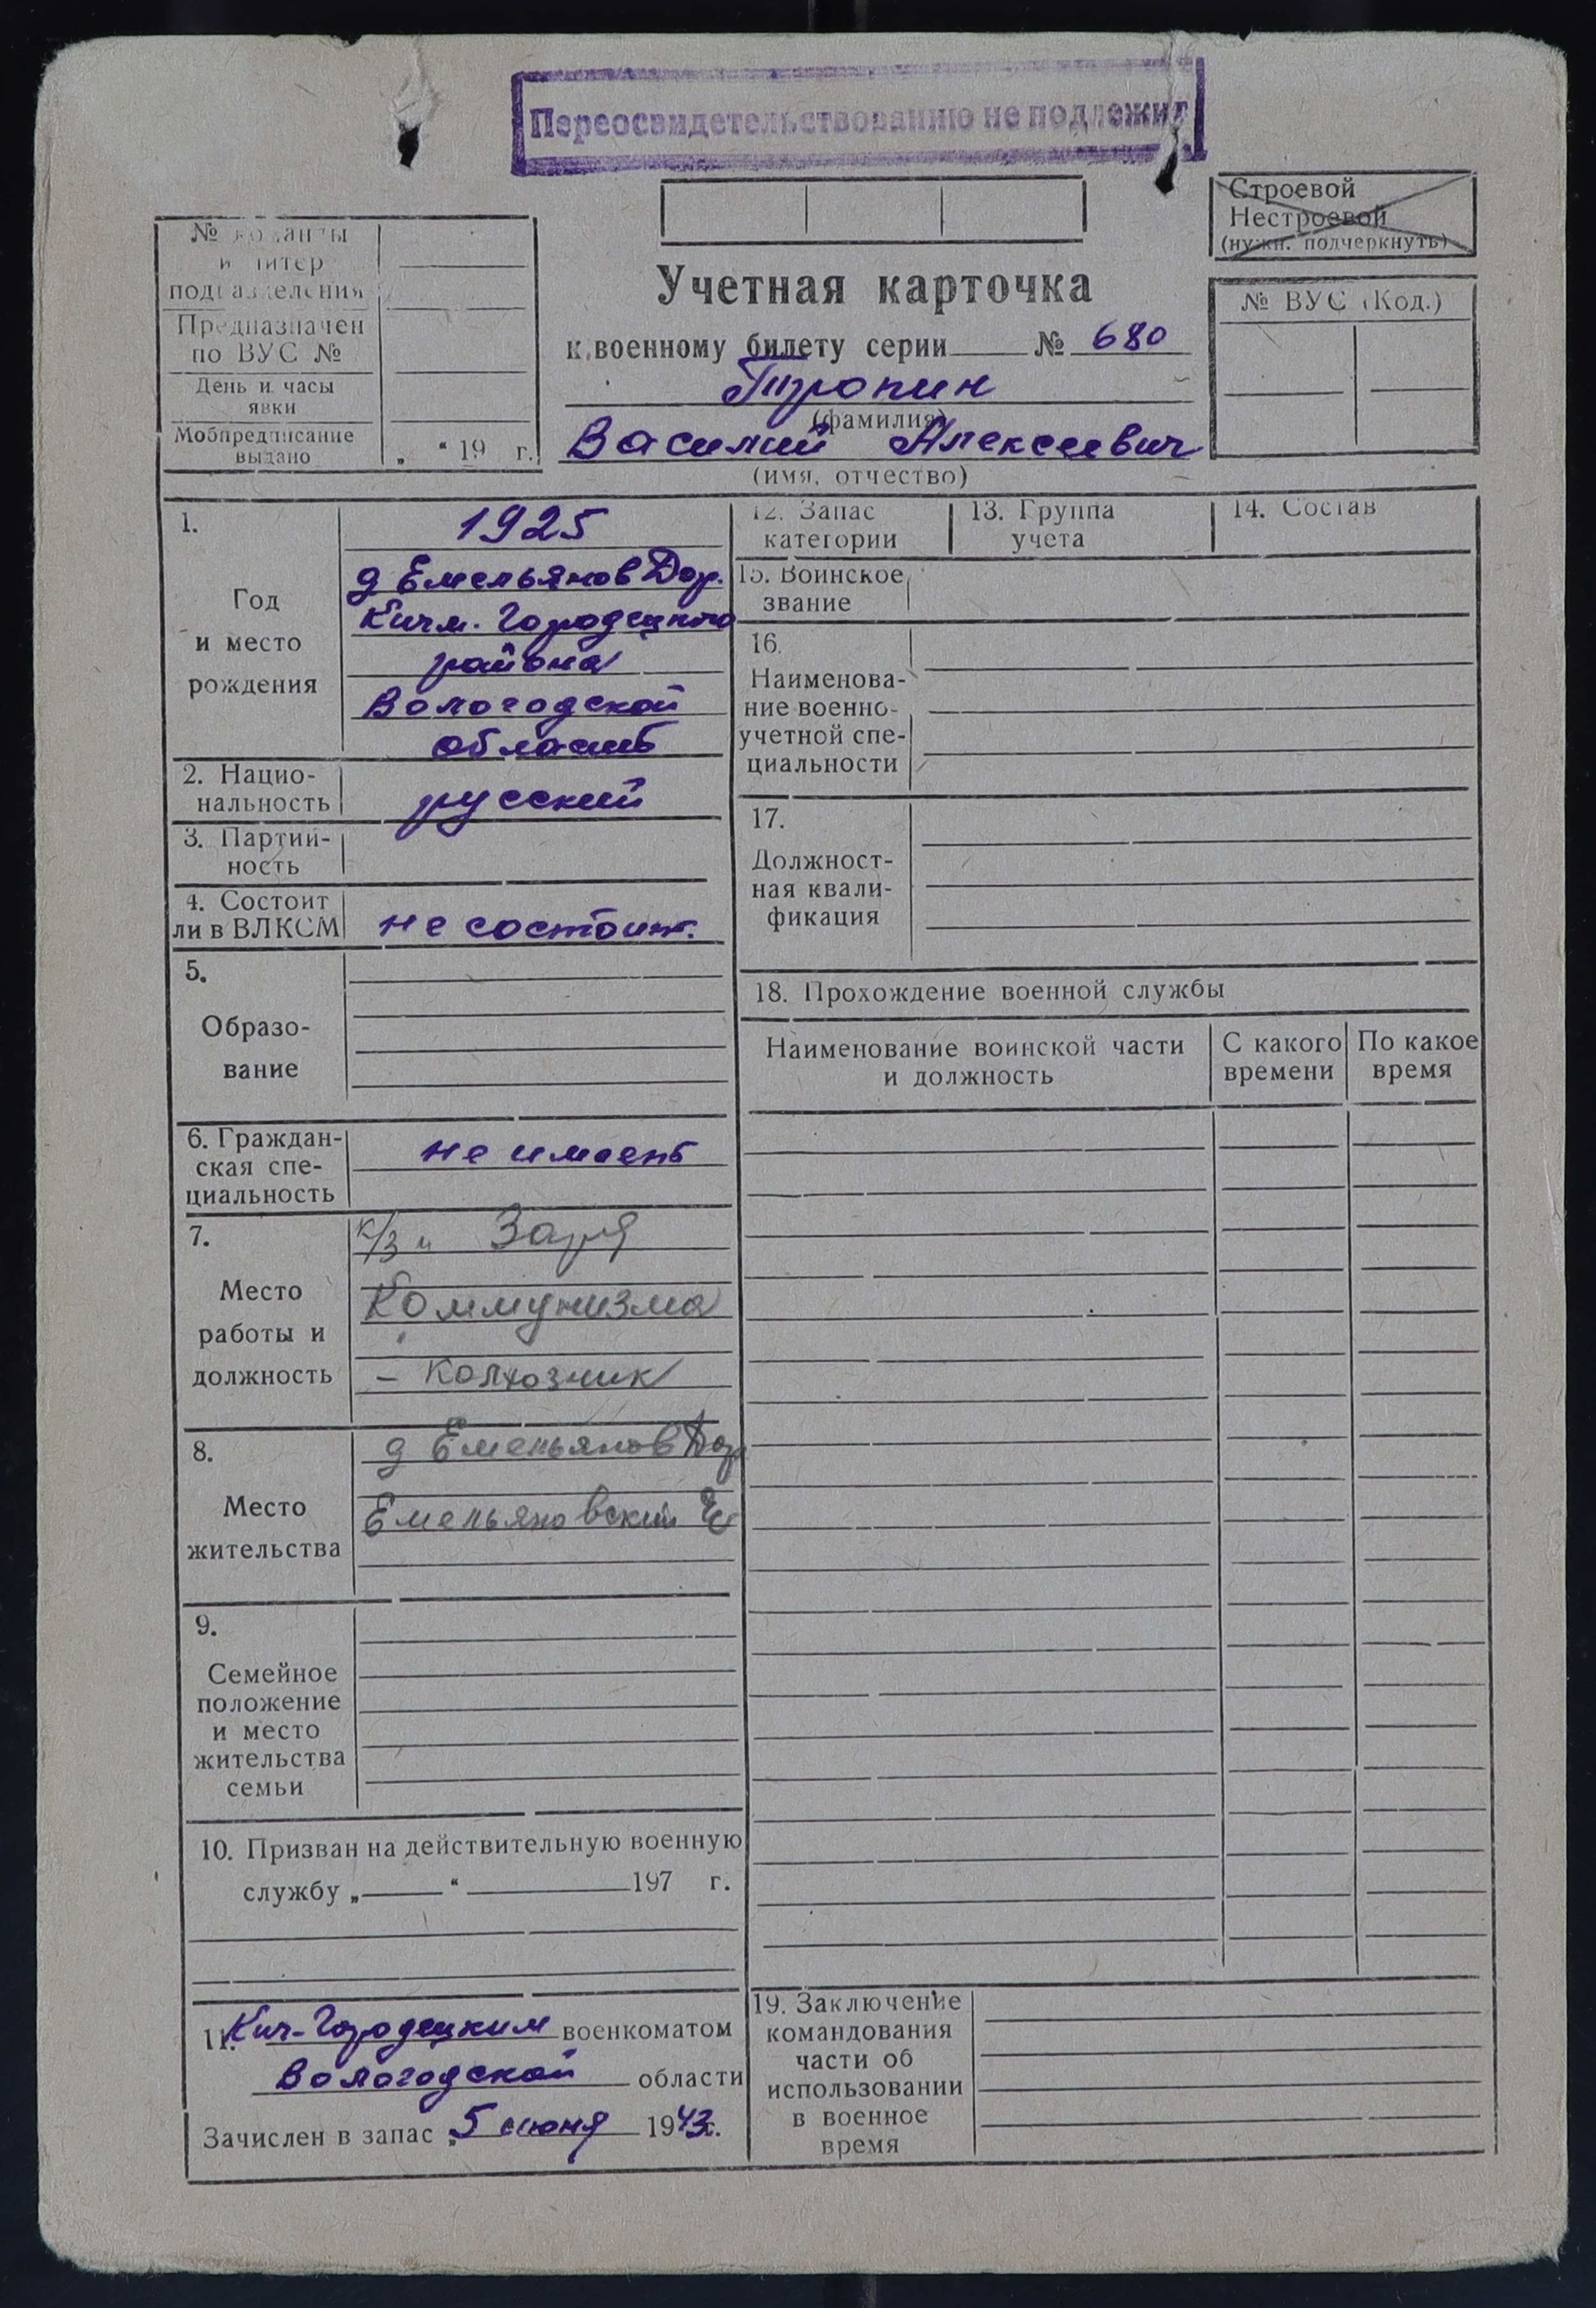 Переосвидетельствованию не подлежит
Строевой
Нестроевой
(нужн. подчеркнуть)
№ команды
и литер
подразделения
Предназначен
по ВУС №
День и часы
явки
Мобпредписание
выдано „ “ 19 г.
Учетная карточка
к военному билету серии № 680
Тропин
(фамилия)
Василий Алексеевич
(имя, отчество)
№ ВУС (Код.)
1.
Год
и место
рождения
1925
д Емельянов Дор.
Кичм. Городецкого
района
Вологодской
область
2. Нацио-
нальность
русский
3. Партий-
ность
4. Состоит
ли в ВЛКСМ
не состоит.
5.
Образо-
вание
6. Граждан-
ская спе-
циальность
не имеет
7.
Место
работы и
должность
к/з „ Заря
Коммунизма
– колхозник
8.
Место
жительства
д Емельянов Дор
Емельяновский
9.
Семейное
положение
и место
жительства
семьи
10. Призван на действительную военную
службу „ “ 197 г.
11. Кич-Городецким военкоматом
Вологодской области
Зачислен в запас „5 июня 1943г.
12. Запас
категории
13. Группа
учета
14. Состав
15. Воинское
звание
16.
Наименова-
ние военно-
учетной спе-
циальности
17.
Должност-
ная квали-
фикация
18. Прохождение военной службы
Наименование воинской части
и должность
С какого
времени
По какое
время
19. Заключение
командования
части об
использовании
в военное
время